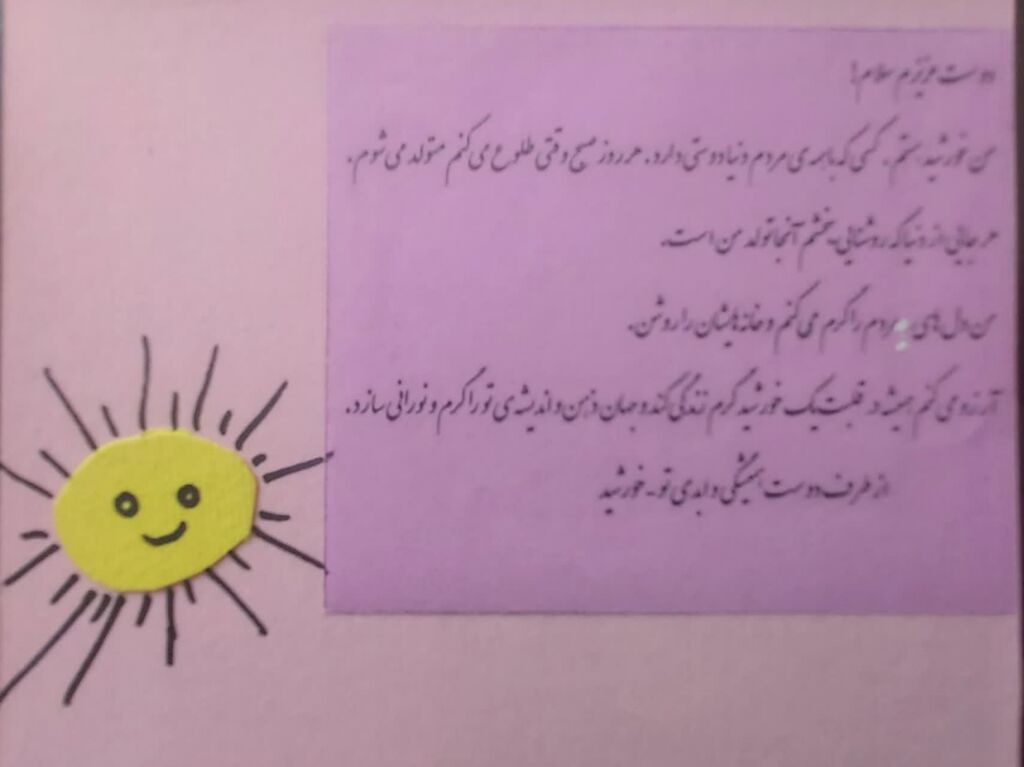 دوست عزیزم سلام!
من خورشید هستم. کسی که با همه‌ی مردم دنیا دوستی دارد. هر روز صبح وقتی طلوع می‌کنم متولد می‌شوم.
هر جایی از دنیا که روشنایی ببخشم آنجا تولد من است.
من دل‌های مردم را گرم می‌کنم و خانه‌هایشان را روشن.
آرزو می‌کنم همیشه در قلبت یک خورشید گرم زندگی کند و جهان و ذهن و اندیشه‌ی تو را گرم و نورانی سازد.
از طرف دوست همیشگی و ابدی تو - خورشید